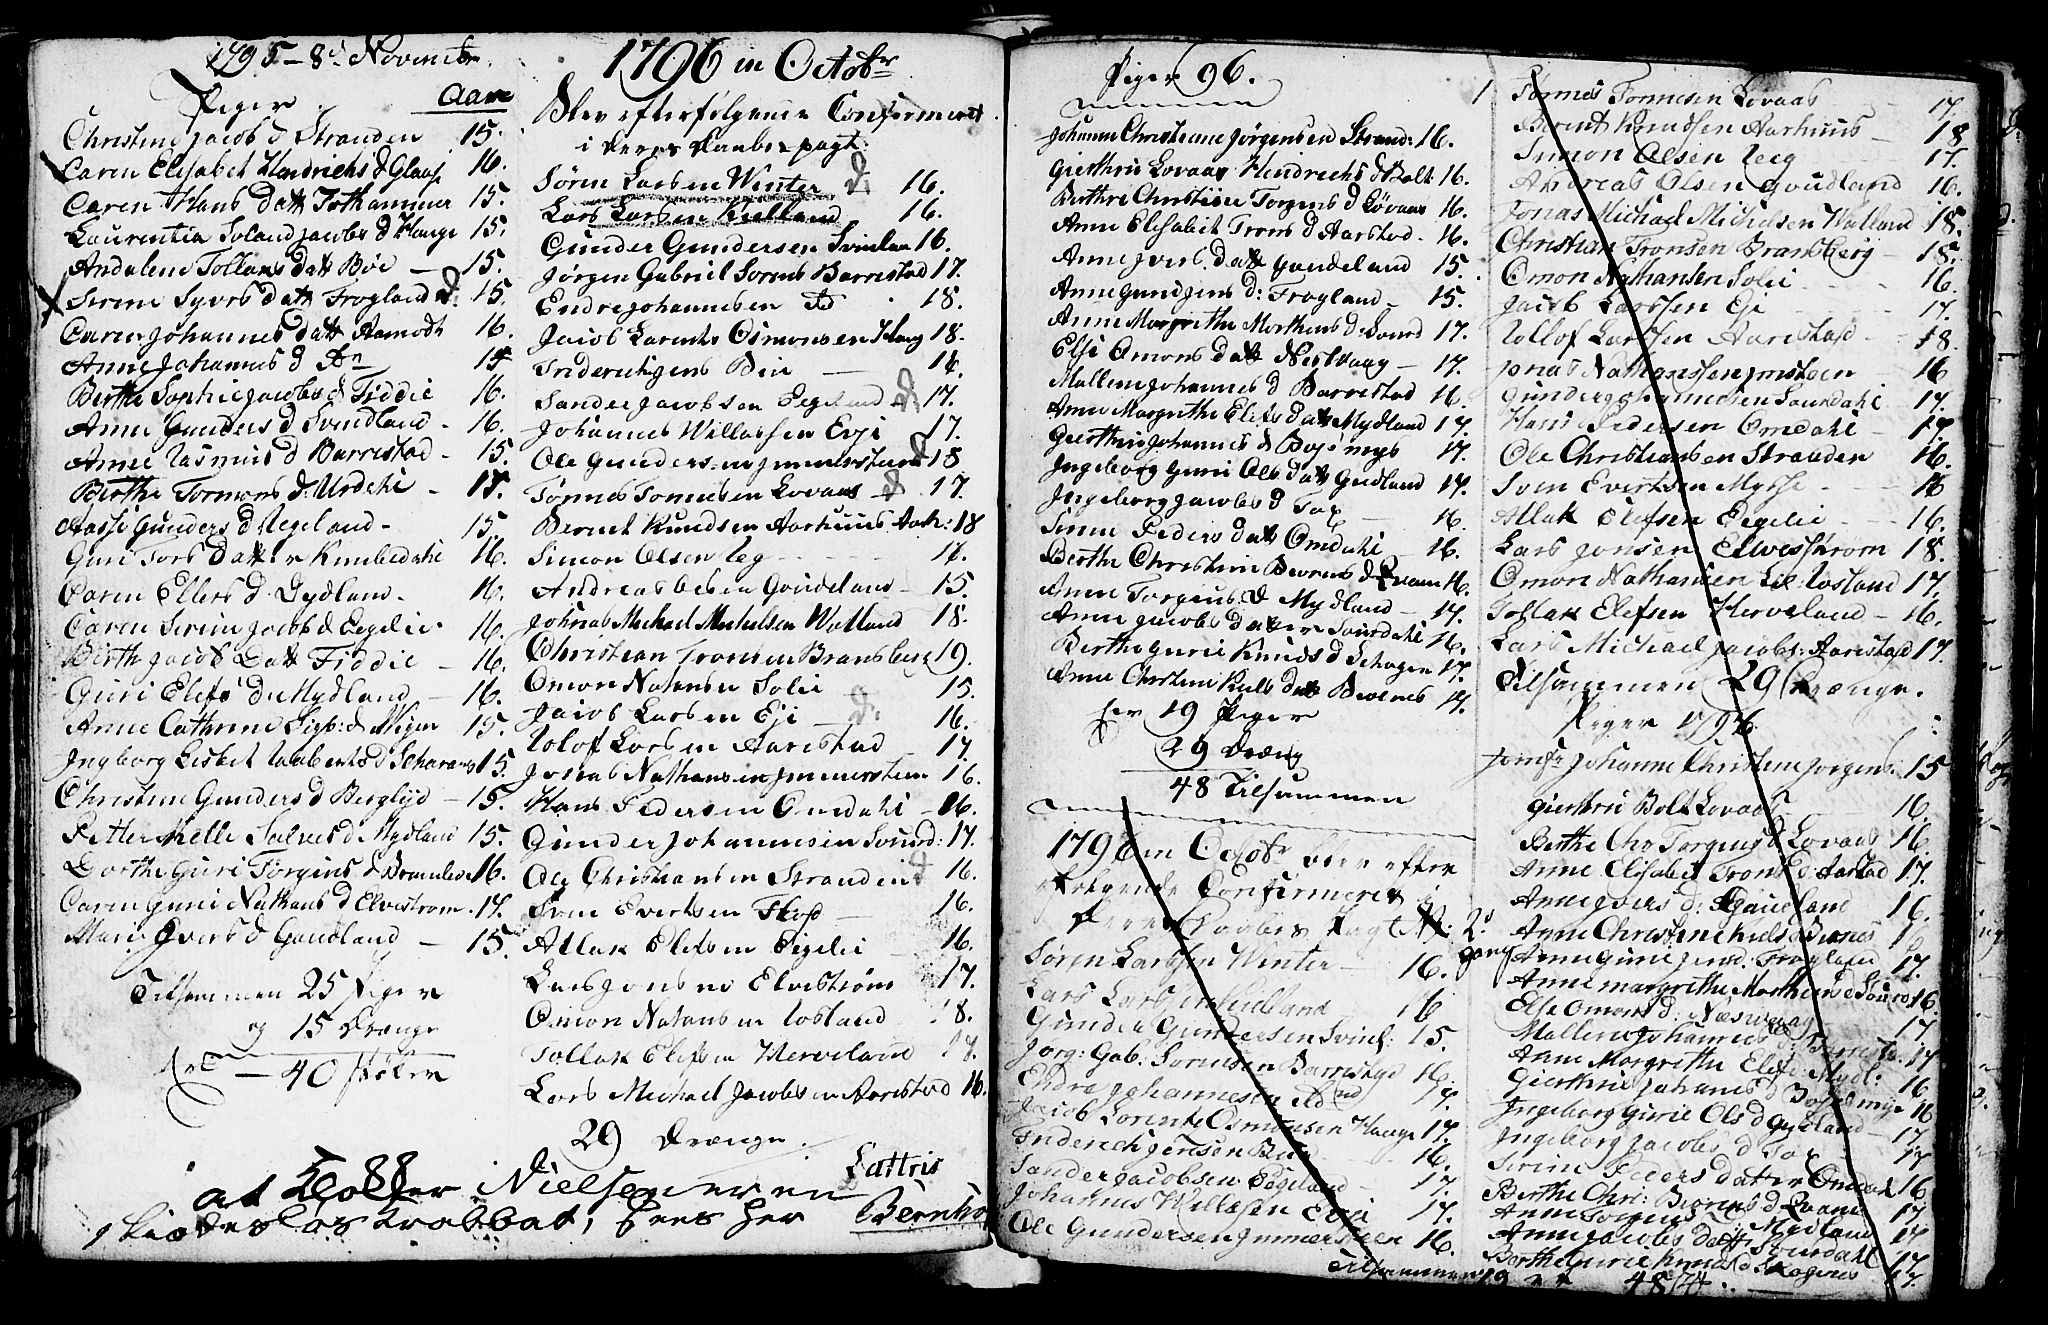 1795 - 8d Novembr
Piger
Aar
Christine Jacobs d Stranden 15.
Caren Elisabet Hendrichs d Glaap 16.
Caren Hans datt Jothammer 15.
Laurentia Toland Jacobs d Hauge 15.
Andalene Tollaks datt Böe - 15.
Serine Syvers datt Frogland d. 15.
Caren Johannes datt Aamodt 16.
Anne Johannes d do 15
Berthe Sophie Jacobs d Fiddie 16.
Anne Gunders d Svindland - 16.
Anne Rasmus d Barrestad - 15.
Berthe Tormons d: Urdahl - 15.
Aasse Gunders d Regeland - 15.
Guri Tors Datter Knubedahl 16.
Caren Ellers d. Dydland - 16.
Caren Serine Jacobs d Eegelie 16.
Berthe Jacobs Datt Fiddie - 16.
Guri Elefs d Mydland - 16.
Anne Cathrine Sigb: d. 15.
Ingborg Lisbet Taaberts d 15.
Christine Gunders d Berglyd - 15.
Petter Melle Salves d Mydland 15.
Dorthe Guri Torgius d 16.
Caren Guri Nathans d Elvestrøm. 17.
Marie Ivers d Goudland - 15.
Tilsammen 25 Piger
og 15 Drænge
er - 40 stöker
1796 in Octobr
Blev efterfølgende Confirmeret
i deres Daabes pagt:
Sören Larsen Winter d. 16.
Lars Larsen Kielland 16.
Gunder Gundersen Svinlan 16.
Jörgen Gabriel Sorens Barrestad 17.
Endre Johannesen Ild 18.
Jacob Larents Osmonsen Haug 18.
Friderich Jens Bie - 16.
Sander Jacobsen Eegeland d. 17.
Johannes Willassen Evje 17.
Ole Gundersen Immersteen d 18
Tönnes Tönnesen Lovaas d 17.
Berent Knudsen Aarhuus 18
Simon Olsen Reg - 17.
Andreas Olsen Goudeland - 15.
Johnas Michael Michelsen Watland 18.
Christian Tronsen Bransberg 19.
Omon Natansen Solie 15.
Jacob Larsen Eje - d. 16.
Rolof Larsen Aarestad - 17.
Jonas Nathansen Immersteen 16.
Hans Pedersen Omdahl - 16.
Gunder Johannesen Sourd: 17.
Ole Christiansen Stranden d 16.
Sven Evertsen 16.
Atlak Elefsen Eigelie - 16.
Lars Jonsen Elvestrøm 17.
Omon Natansen Rosland 18.
Tollak Elefsen Herveland 17.
Lars Michael Jacobsen Aarestad 16.
29 Drænge.
at Nielsen er en
Krabbat, sees her
Lattris
Bernho
Piger 96.
Johanne Christiane Jørgensen Strand: 16.
Gierthru Lovaas Hendrichs d Bolt 16.
Berthe Christine Torgens d Lövaas 16.
Anne Elisabet Trons d Aarstad - 16.
Anne Ivers. datt Goudeland 15.
Anne Guri Jens d: Frogland - 15.
Anne Margrethe Morthens d: Sourd 17.
Else Omons datt Nesvaag - 17.
Mallene Johannes d Barrestad 16.
Anne Margrethe Elefs datt Mydland 17.
Gierthru Johannes d Bossmyr 17.
Ingeborg Guri Ols datt Gydland 17.
Ingeborg Jacobs d Tax 16.
Sirene Peders datt Omdahl - 16.
Berthe Christine Beorns d Evann 16.
Anne Torgius d Mydland - 17.
Anne Jacobs datter Sourdahl 16.
Berthe Gurie Knuds d Schogen 17.
Anne Christine Kiels datt Beernes 17.
her 19 Piger
29 Dræng
48 Tilsammen
1796 in Octobr blev efter
følgende Confirmeret i
deres Daabes Pagt N: 2d
gang
Sören Larssen Winter - 16.
Lars Larssen Kielland 16
Gunder Gundersen Svinl: 15.
Jorg: Gab: Sorensen Barrestad 16.
Endre Johannesen Ild 17.
Jacob Lorents Osmonsen Hauge 17.
Friderich Jensen Bie - 16.
Sander Jacobsen Eegeland - 17.
Johannes Willasen Evje 17.
Ole Gundersen Immersteen 16.
1 Tönnes Tönnesen Lovaas 17.
Berent Knudsen Aarhuus - 18
Simon Olsen Reeg 17.
Andreas Olsen Goudland 16.
Jonas Michael Michelsen Watland 18.
Christian Tronsen Bransberg - 18.
Omon Nathansen Solie 16.
Jacob Larssen Eje 17.
Rollof Larssen Aarestad 18.
Jonas Nathanssen Imsteen - 16
Gunder Johannesen Sourdahl 17.
Hans Pedersen Omdahl - 17
Ole Christiansen Stranden 16.
Sven Evertsen Mysse - 16
Atlak Elefsen Eegelie - 16.
Lars Jonsen Elvestrøm 18.
Omon Nathansen Lil: Rosland 17.
Tollak Elefsen Herveland - 16.
Lars Michael Jacobs: Aarestad 17.
Tilsammen 29 Drænge.
Piger 1796.
Jomfr Johanne Christine Jorgens: 15
Gierthru Bolt Lovaas 16.
Berthe Chr Torgius d Lovaas 16.
Anne Elisabet Trons d: Aarstad 17.
Anne Ivers d: Goudland 16.
Anne Christine Kiels d Bernes 16
Anne Gurie Jens d. Frogland 17.
Anne Margrethe Morthens d Sourd 16.
Else Omons d: Næsvaag 17
Mallene Johannes d: Barresta: 17
Anne Margrethe Elefs Mydl: 16
Gierthru Johanes d Bossmyr 16
Ingeborg Gurie Ols d Gydland - 17.
Ingeborg Jacobs d Tax - 17
Serine Peders datter Omdahl 16
Berthe Chr: Beorens d Evann 17
Anne Torgius d Mydland 17
Anne Jacobs datt Sourdahl 17.
Berthe Gurie Knuds d Skogenes 17.
Tilsammen 19 er 48